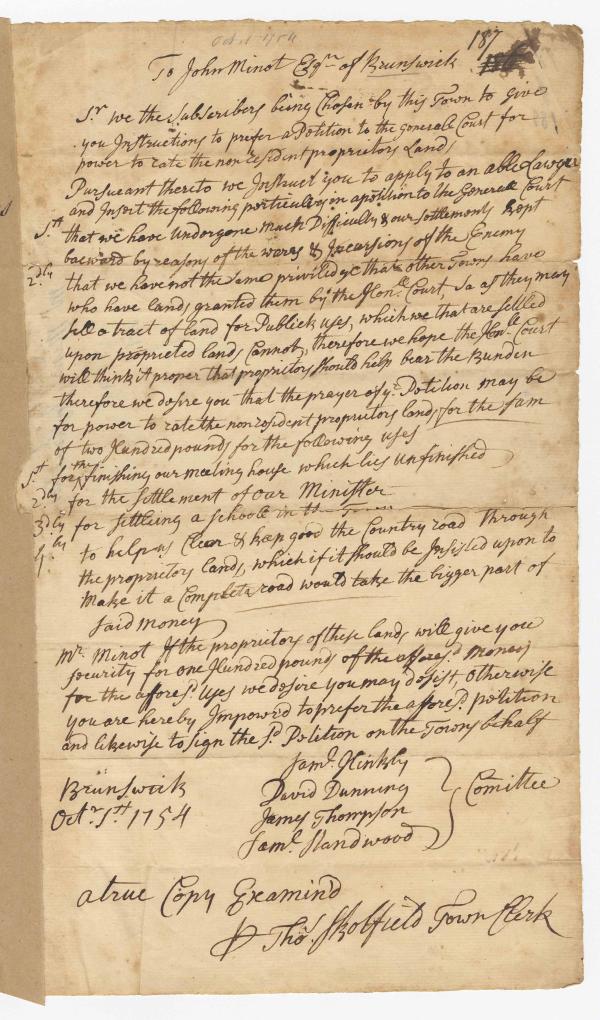 Oct 1 1754
187
To John Minot Esqr. of Brunswick
Sr. we the subscribers being Chosen by this Town to give
you Instructions to prefer a Petition to the generale Court for
power to rate the non resident proprietors Lands
Purseuant thereto we Instruct you to apply to an able Lawyer
and Insert the following perticulers in a petition to the General Court
1st that we have undergone much Difficulty & our settlements kept
backward by reasons of the warrs & Incursions of the Enemy
2dly that we have not the same priviledge that other Towns have
who have lands granted them by the Honble. Court, in as they may
sell a tract of land for Publick uses, which we that are settled
upon proprieted lands Cannot, therefore we hope the Honble Court
will think it proper that proprietors should help bear the Burden
therefore we desire you that the prayer of yr. Petition may be
for power to rate the nonresident proprietors lands for the sum
of two Hundred pounds for the following uses
1st for finishing our meeting house which lies unfinished
2dly for the settlement of our Minister
3dly for settleing a schoole in the Town
4ly to help us Clear & keep good the Country road through
the proprietors lands, which if it should be Insisted upon to
Make it a Compleate road would take the bigger part of
said money
Mr. Minot If the proprietors of these lands will give you
security for one Hundred pounds of the affoRsd. money
for the affore sd. Uses we desire you may desist, otherwise
you are hereby Impowr'd to prefer the affore sd. petition
and likewise to sign the sd. Petition on the Towns behalf
Brunswick
Octr. 1st 1754
Saml. Hinkly
David Dunning
James Thompson
Saml. Standwood
Comittee
a true Copy Examind
Thos. Skolfield Town Clerk